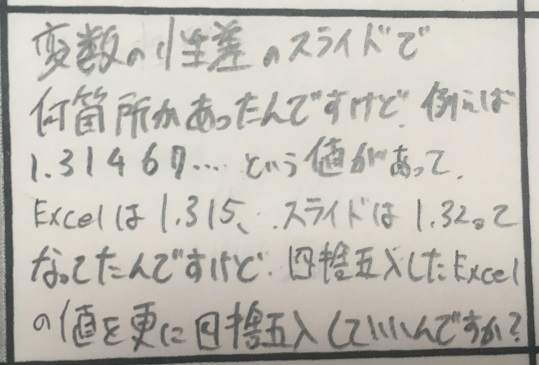 変数の性差のスライドで
何箇所かあったんですけど、例えば
1.31467… という値があって、
Excelは1.315、スライドは1.32って
なってたんですけど、四捨五入したExcel
の値を更に四捨五入していいんですか?